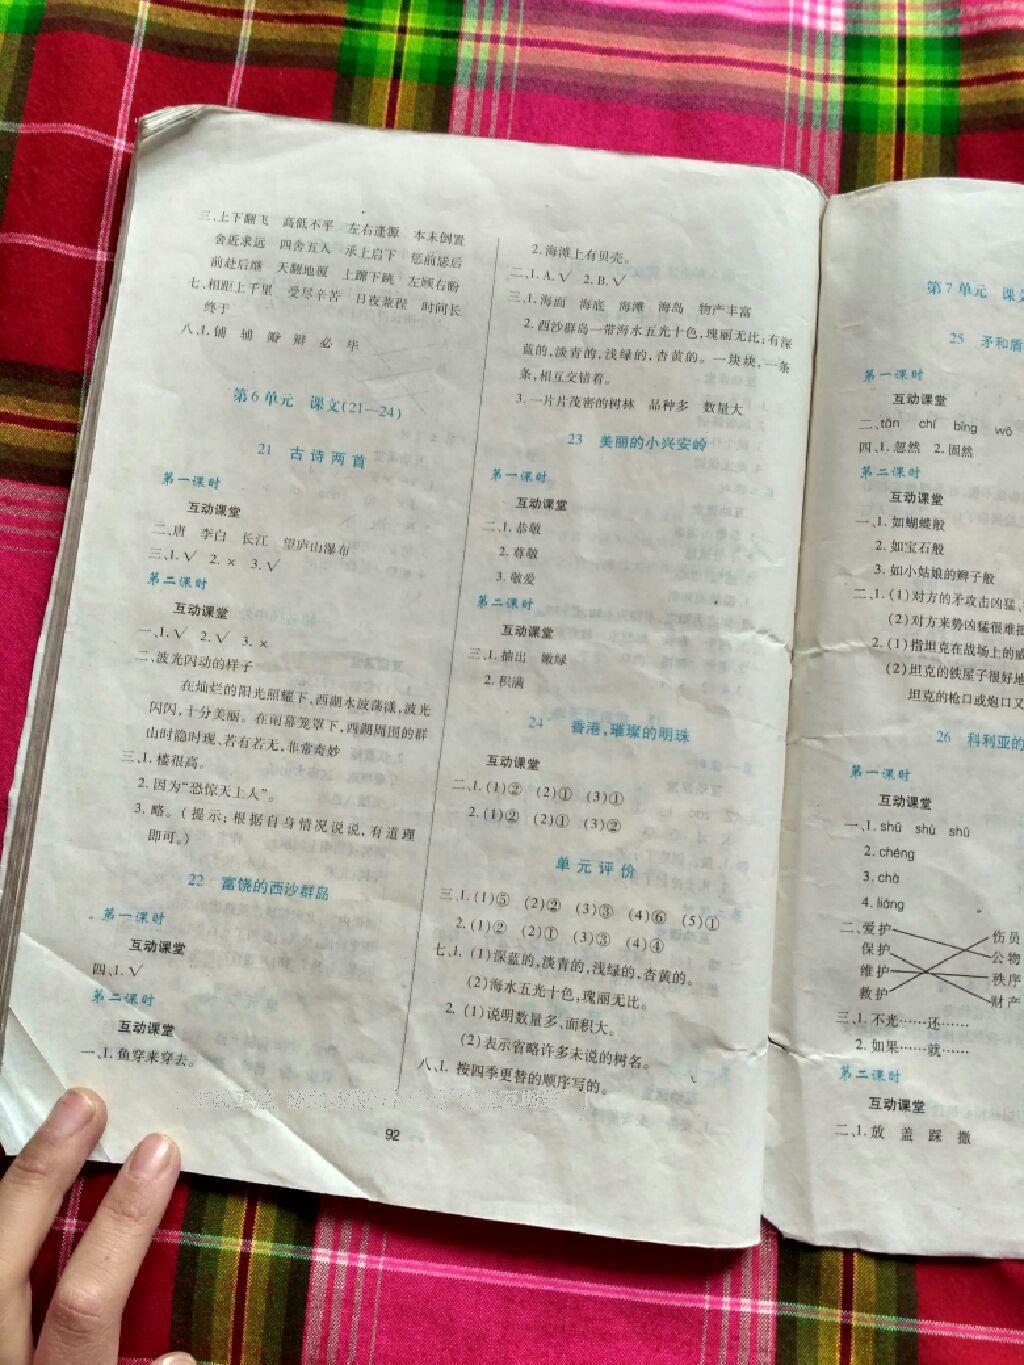 三、上下翻飞 高低不平 左右逢源 本末倒置
舍近求远 四舍五入 承上启下 惩前毖后
前赴后继 天翻地覆 上蹿下跳 左顾右盼
七、相距上千里 受尽辛苦 日夜兼程 时间长
终于
八、1.铺 辅 瓣 辩 必 毕
第6单元 课文(21—24)
21 古诗两首
第一课时
互动课堂
二、唐 李白 长江 望庐山瀑布
三、1.√ 2.× 3.√
第二课时
互动课堂
一、1.√ 2.√ 3.×
二、波光闪动的样子
在灿烂的阳光照耀下,西湖水波荡漾,波光
闪闪,十分美丽。在雨幕笼罩下,西湖周围的群
山时隐时现、若有若无,非常奇妙
三、1.楼很高。
2.因为“恐惊天上人”。
3.略。(提示:根据自身情况说说,有道理
即可。)
22 富饶的西沙群岛
第一课时
互动课堂
四、1.√
第二课时
互动课堂
一、1.鱼穿来穿去。
2.海滩上有贝壳。
二、1.A.√ 2.B.√
三、1.海面 海底 海滩 海岛 物产丰富
2.西沙群岛一带海水五光十色,瑰丽无比;有深
蓝的,淡青的,浅绿的,杏黄的。一块块,一条
条,相互交错着。
3.一片片茂密的树林 品种多 数量大
23 美丽的小兴安岭
第一课时
互动课堂
二、1.恭敬
2.尊敬
3.敬爱
第二课时
互动课堂
三、1.抽出 嫩绿
2.积满
24 香港,璀璨的明珠
互动课堂
二、1.(1)② (2)① (3)①
2.(1)② (2)① (3)②
单元评价
三、1.(1)⑤ (2)② (3)③ (4)⑥ (5)①
2.(1)② (2)① (3)③ (4)④
七、1.(1)深蓝的,淡青的,浅绿的,杏黄的。
(2)海水五光十色,瑰丽无比。
2.(1)说明数量多、面积大。
(2)表示省略许多未说的树名。
八、1.按四季更替的顺序写的。
92
第7单元 课文
25 矛和盾
第一课时
互动课堂
二、tān chī bīng wō
四、1.忽然 2.固然
第二课时
互动课堂
一、1.如蝴蝶般
2.如宝石般
3.如小姑娘的辫子般
二、1.(1)对方的矛攻击凶猛、
(2)对方来势凶猛很难抵
2.(1)指坦克在战场上的威
(2)坦克的铁屋子很好地
坦克的枪口或炮口又
26 科利亚的
第一课时
互动课堂
一、1.shū shù shǔ
2.chéng
3.chā
4.liáng
二、爱护 伤员
保护 公物
维护 秩序
救护 财产
三、1.不光……还……
2.如果……就……
第二课时
互动课堂
二、1.放 盖 踩 撒